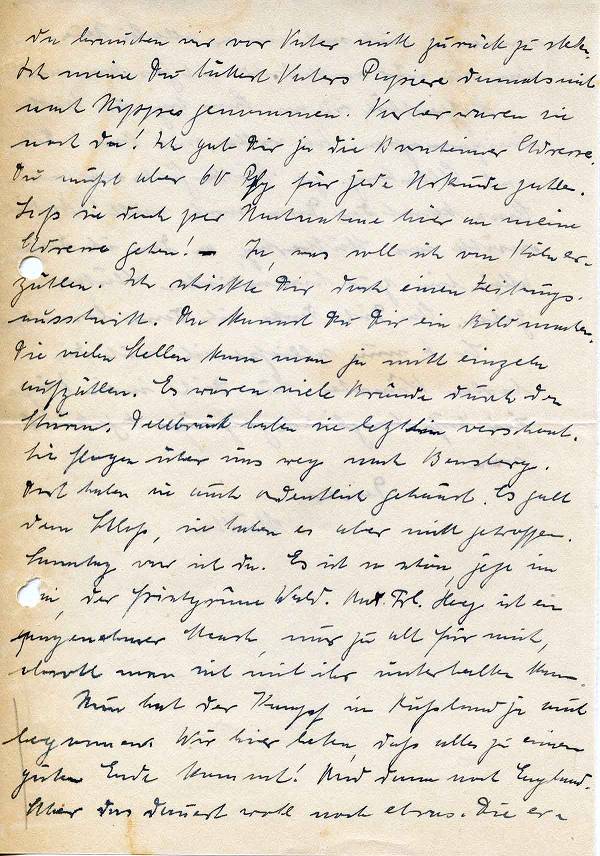 du brauchen wir vor Vater nicht zurück zu stehn.
Ich meine Du hättest Vaters Papiere damals mit
nach Nippes genommen. Vorher waren sie
noch da! Ich gab Dir ja die Adresse.
Du mußt aber 60 Pfg für jede Urkunde zahlen.
Laß sie doch per Nachnahme hier an meine
Adresse gehen! – Ja, was soll ich von Köln er-
zählen. Ich schickte Dir doch einen Zeitungs-
ausschnitt. Da kannst Du Dir ein Bild machen.
Die vielen Stellen kann man ja nicht einzeln
aufzählen. Es wären viele Brände durch den
Sturm. Dellbrück haben sie letzthin verschont.
Sie flogen über uns weg nach Bensberg.
Dort haben sie auch ordentlich gehaust. Es galt
dem Schloß, sie haben es aber nicht getroffen.
Sonntag war ich da. Es ist so schön, jetzt im
der frischgrüne Wald. Frl. ist ein
angenehmer Mensch, nur zu alt für mich,
obwohl man sich mit ihr unterhalten kann.
Nun hat der Kampf in Rußland ja auch
begonnen. Wir hier beten, daß alles zu einem
guten Ende kommt! Und dann noch England.
Aber das dauert wohl noch etwas. Die er-